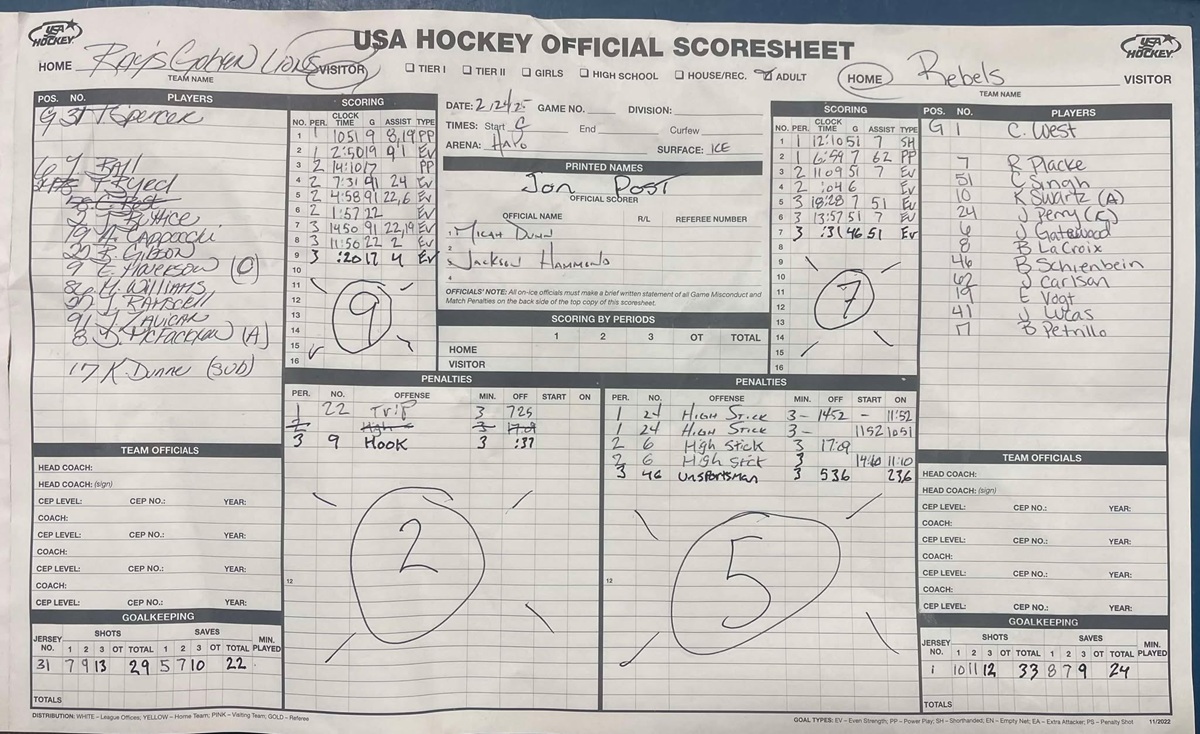 USA HOCKEY
USA HOCKEY OFFICIAL SCORESHEET
USA HOCKEY
HOME Ray's Golden Lions VISITOR
TEAM NAME
TIER I TIER II GIRLS HIGH SCHOOL HOUSE/REC. ADULT
HOME Rebels VISITOR
TEAM NAME
POS. NO. PLAYERS
G 31 T Spencer
Ball
T Byed
2 T Ruffice
19 A. Cappocchi
20 B. Gibson
9 E. (C)
86 M. Williams
22 Y Ramscell
91
8 D. McFadden (A)
17 K. Dunne (SUB)
SCORING
NO. PER. CLOCK TIME G ASSIST TYPE
1 1 1051 9 8,19 PP
2 1 2:50 19 91 EV
3 2 14:10 17 PP
4 2 7:31 91 24 EV
5 2 4:58 91 22,6 EV
6 2 1:57 22 EV
7 3 1450 91 22,19 EV
8 3 11:56 22 2 EV
9 3 :20 17 4 EV
10
11
12
13
14
15
16
9
DATE: 2,24,25 GAME NO. DIVISION:
TIMES: Start End Curfew
ARENA: HAPO SURFACE: ICE
PRINTED NAMES
Jon Post
OFFICIAL SCORER
OFFICIAL NAME R/L REFEREE NUMBER
1 Micah Dunn
2
3 Jackson Hammond
4
OFFICIALS' NOTE: All on-ice officials must make a brief written statement of all Game Misconduct and
Match Penalties on the back side of the top copy of this scoresheet.
SCORING BY PERIODS
1 2 3 OT TOTAL
HOME
VISITOR
SCORING
NO. PER. CLOCK TIME G ASSIST TYPE
1 1 12:10 51 7 SH
2 1 6:59 7 62 PP
3 2 1109 51 7 EV
4 2 :04 6 EV
5 3 18:28 7 51 EV
6 3 13:57 51 7 EV
7 3 :31 46 51 EV
8
9
10
11
12
13
14
15
16
7
POS. NO. PLAYERS
G 1 C. West
7 R Placke
51 C Singh
10 K Swartz (A)
24 J Perry (C)
6 J Gatewood
8 B LaCroix
46 B Schienbein
62 J Carlson
19 E Vogt
41 J Lucas
17 B Petrillo
PENALTIES
PER. NO. OFFENSE MIN. OFF START ON
1 22 Trip 3 725
2 High S 3 17:09
3 9 Hook 3 :37
12
2
PENALTIES
PER. NO. OFFENSE MIN. OFF START ON
1 24 High Stick 3- 1452 - 11:52
1 24 High Stick 3- 1152 1051
2 6 High Stick 3 17:09
2 6 High Stick 3 14:10 11:10
3 46 Unsportsman 3 536 236
12
5
TEAM OFFICIALS
HEAD COACH:
HEAD COACH: (sign)
CEP LEVEL: CEP NO.: YEAR:
COACH:
CEP LEVEL: CEP NO.: YEAR:
COACH:
CEP LEVEL: CEP NO.: YEAR:
COACH:
CEP LEVEL: CEP NO.: YEAR:
GOALKEEPING
JERSEY NO. SHOTS SAVES MIN. PLAYED
1 2 3 OT TOTAL 1 2 3 OT TOTAL
31 7 9 13 29 5 7 10 22
TOTALS
TEAM OFFICIALS
HEAD COACH:
HEAD COACH: (sign)
CEP LEVEL: CEP NO.: YEAR:
COACH:
CEP LEVEL: CEP NO.: YEAR:
COACH:
CEP LEVEL: CEP NO.: YEAR:
COACH:
CEP LEVEL: CEP NO.: YEAR:
GOALKEEPING
JERSEY NO. SHOTS SAVES MIN. PLAYED
1 2 3 OT TOTAL 1 2 3 OT TOTAL
1 10 11 12 33 8 7 9 24
TOTALS
DISTRIBUTION: WHITE – League Offices; YELLOW – Home Team; PINK – Visiting Team; GOLD – Referee
GOAL TYPES: EV – Even Strength; PP – Power Play; SH – Shorthanded; EN – Empty Net; EA – Extra Attacker; PS – Penalty Shot 11/2022